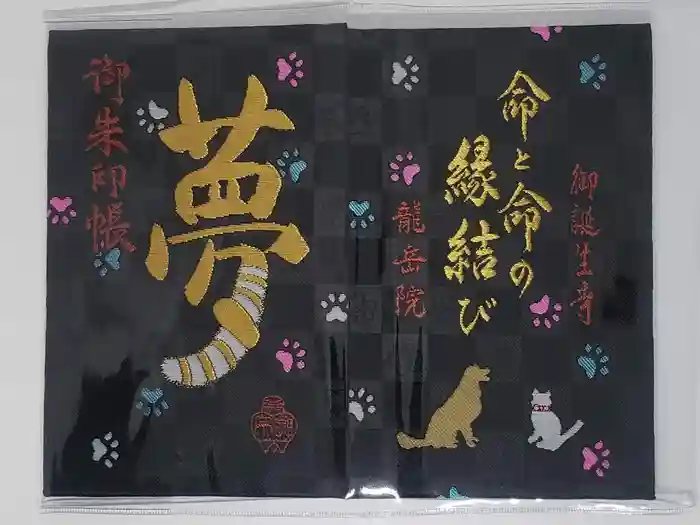 御誕生寺
命と命の
縁結び
龍岳院
夢
御朱印帳